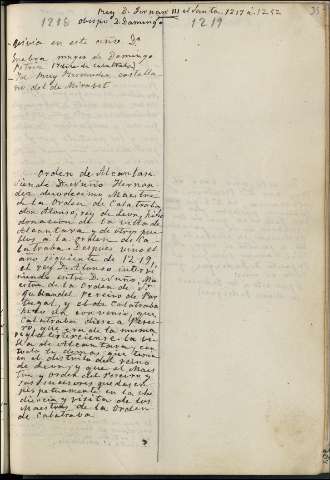 Rey D. Fernando III el Santo, 1217 a 1252
1218 obispo D. Domingo 1219
35
- Vivia en este año Dª
muger de Domingo
Potria
- Fue Ruy Hernandez castella
no del de Mirabet
Orden de Alcantara
Siendo D. Nuño Hernan
dez duodecimo Maestre
de la Orden de Calatraba,
don Alonso, rey de Leon, hizo
donacion de la villa de
Alcantara y de otros pue
blos a la Orden de Ca-
latraba. Despues vino el
año siguiente de 1219,
el rey D. Alonso intervi
niendo entre D. Nuño, Ma
estre de la Orden de Sn
Julian del Pereiro de Por
tugal, y el de Calatraba
hubo un convenio, que
Calatraba diese a Perei
ro, que era de la misma
regla cisterciense la vi
lla de Alcantara, con
todo lo demas que tenia
en el distrito del reino
de Leon, y que el Maes
tre y Orden del Pereiro y
sus sucesores quedasen
perpetuamente en la obe
diencia y visita de los
Maestres de la Orden
de Calatraba